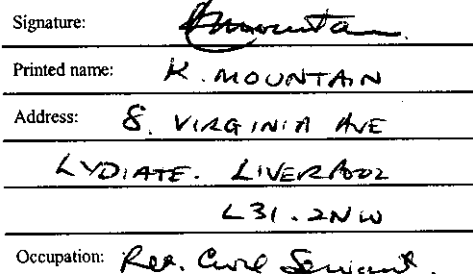 Signature: Kmountain.
Printed name: K. MOUNTAIN
Address: 8. VIRGINIA AVE
LYDIATE. LIVERPOOL
L31. 2NW
Occupation: Ret. Civil Servant.